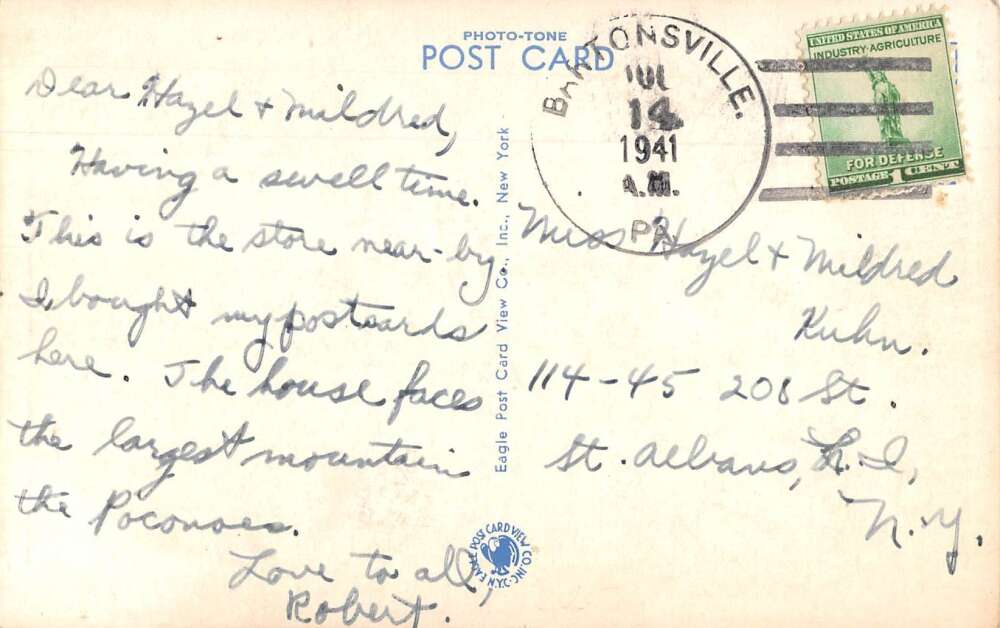 PHOTO-TONE
POST CARD
Dear Hazel & Mildred,
Having a swell time.
This is the store near-by
I bought my postcards
here. The house faces
the largest mountain
the Poconoes.
Love to all,
Robert.
Eagle Post Card View Co., Inc., New York
EAGLE POST CARD VIEW CO. INC. N.Y.C.
BARTONSVILLE.
JUL
14
1941
A.M.
PA.
UNITED STATES OF AMERICA
INDUSTRY·AGRICULTURE
FOR DEFENSE
POSTAGE 1 CENT
Miss Hazel & Mildred
Kuhn.
114-45 208 St.
St. Albans, L.I,
N.Y.